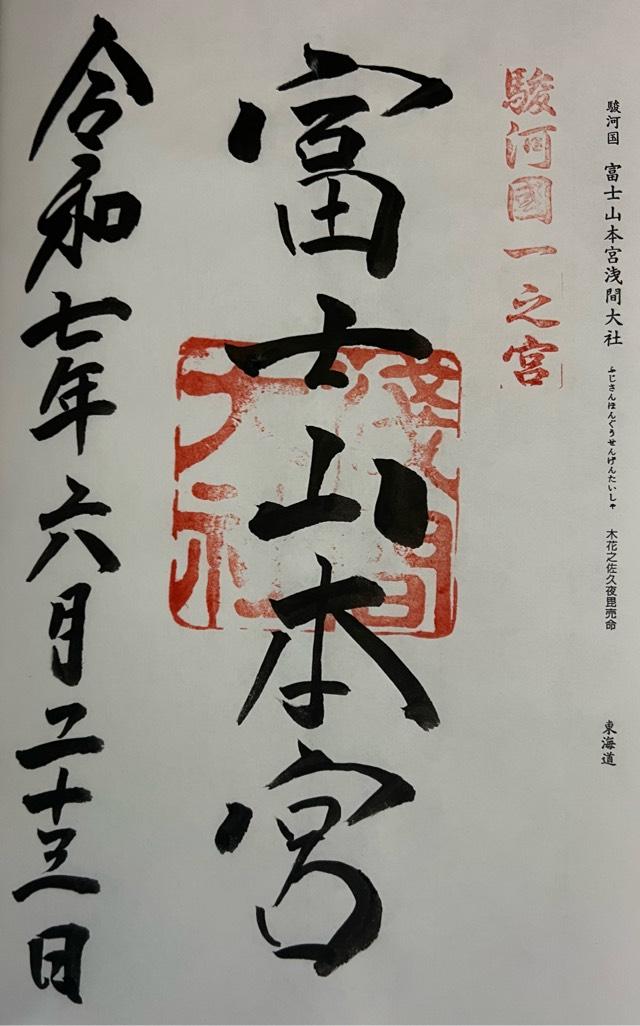 駿河国 富士山本宮浅間大社 ふじさんほんぐうせんげんたいしゃ 木花之佐久夜毘売命 東海道
駿河國一之宮
富士山本宮
淺間
大社
令和七年六月二十三日